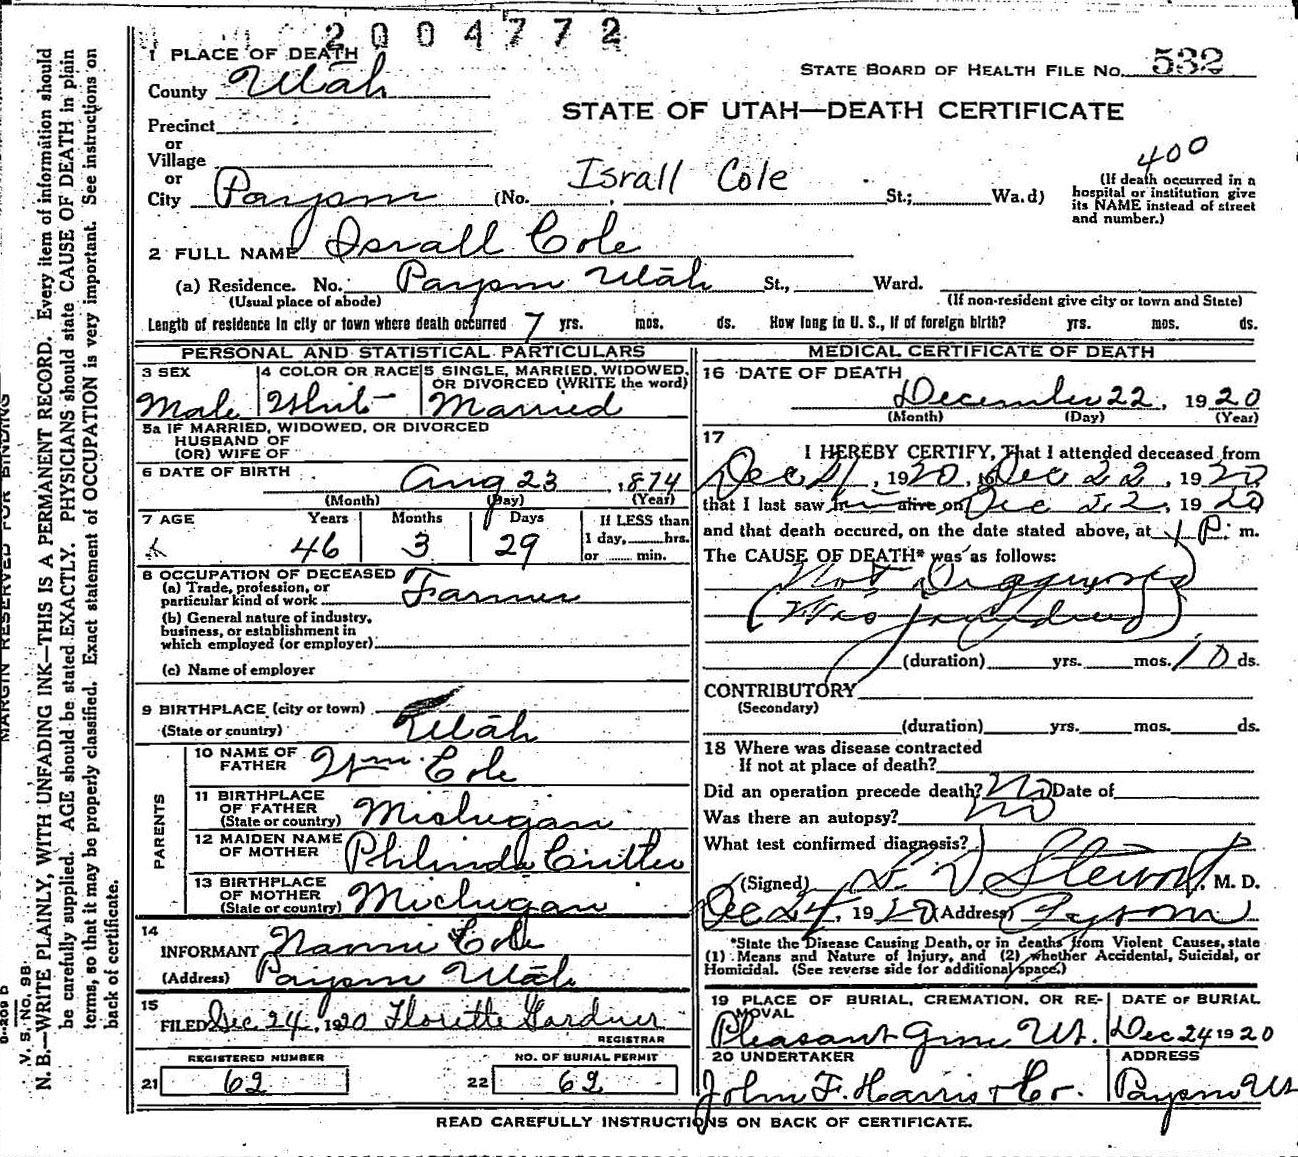 2004772
1 PLACE OF DEATH
County Utah
STATE BOARD OF HEALTH FILE No. 532
STATE OF UTAH—DEATH CERTIFICATE
Precinct
or
Village
or
City Payson (No. Israll Cole St.; Wa.d)
400
(If death occurred in a
hospital or institution give
its NAME instead of street
and number.)
2 FULL NAME Israll Cole
(a) Residence. No. Payson Utah St., Ward.
(Usual place of abode) (If non-resident give city or town and State)
Length of residence in city or town where death occurred 7 yrs. mos. ds. How long in U. S., if of foreign birth? yrs. mos. ds.
PERSONAL AND STATISTICAL PARTICULARS
3 SEX 4 COLOR OR RACE 5 SINGLE, MARRIED, WIDOWED,
OR DIVORCED (WRITE the word)
Male White Married
5a IF MARRIED, WIDOWED, OR DIVORCED
HUSBAND OF
(OR) WIFE OF
6 DATE OF BIRTH Aug 23, 1874
(Month) (Day) (Year)
7 AGE Years Months Days If LESS than
1 day, hrs.
46 3 29 or min.
8 OCCUPATION OF DECEASED
(a) Trade, profession, or
particular kind of work Farmer
(b) General nature of industry,
business, or establishment in
which employed (or employer)
(c) Name of employer
9 BIRTHPLACE (city or town)
(State or country) Utah
PARENTS
10 NAME OF
FATHER Wm. Cole
11 BIRTHPLACE
OF FATHER
(State or country) Michigan
12 MAIDEN NAME
OF MOTHER
13 BIRTHPLACE
OF MOTHER
(State or country) Michigan
14
INFORMANT Nannie Cole
(Address) Payson Utah
15
FILED Dec 24, 1920 Florette Gardner
REGISTRAR
REGISTERED NUMBER NO. OF BURIAL PERMIT
21 62 22 62
MEDICAL CERTIFICATE OF DEATH
16 DATE OF DEATH
December 22, 1920
(Month) (Day) (Year)
17
I HEREBY CERTIFY, That I attended deceased from
Dec , 1920, to Dec 22, 1920
that I last saw alive on Dec 22, 1920
and that death occured, on the date stated above, at P. m.
The CAUSE OF DEATH* was as follows:
Not
Was
(duration) yrs. mos. 10 ds.
CONTRIBUTORY
(Secondary)
(duration) yrs. mos. ds.
18 Where was disease contracted
If not at place of death?
Did an operation precede death? No Date of
Was there an autopsy? No
What test confirmed diagnosis?
(Signed) Stewart, M. D.
Dec 24, 1920 (Address) Payson
*State the Disease Causing Death, or in deaths from Violent Causes, state
(1) Means and Nature of Injury, and (2) whether Accidental, Suicidal, or
Homicidal. (See reverse side for additional space.)
19 PLACE OF BURIAL, CREMATION, OR RE-
MOVAL DATE OF BURIAL
Pleasant Grove Ut. Dec 24 1920
20 UNDERTAKER ADDRESS
John F. Harris & Co. Payson Ut
READ CAREFULLY INSTRUCTIONS ON BACK OF CERTIFICATE.
MARGIN RESERVED FOR BINDING
V. S. No. 98
N. B.—WRITE PLAINLY, WITH UNFADING INK—THIS IS A PERMANENT RECORD. Every item of information should
be carefully supplied. AGE should be stated EXACTLY. PHYSICIANS should state CAUSE OF DEATH in plain
terms, so that it may be properly classified. Exact statement of OCCUPATION is very important. See instructions on
back of certificate.